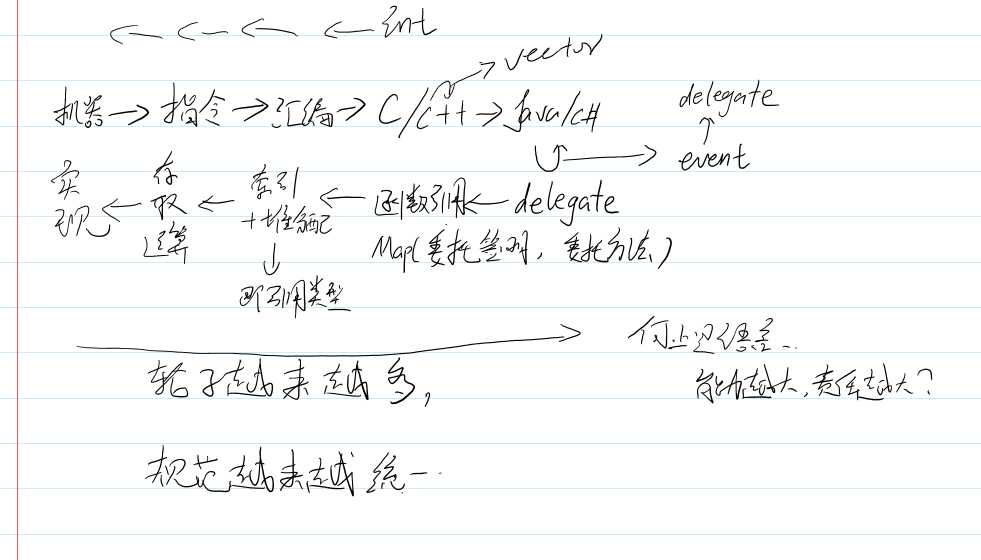 ← ← ← ← int
vector
机器 → 指令 → 汇编 → C/C++ → Java/C#
delegate
event
实现 ← 存取运算 ← 索引+堆分配 ← 函数引用 ← delegate
Map(委托签名, 委托方法)
即引用类型
轮子越来越多,
能力越大,责任越大?
规范越来越统一..